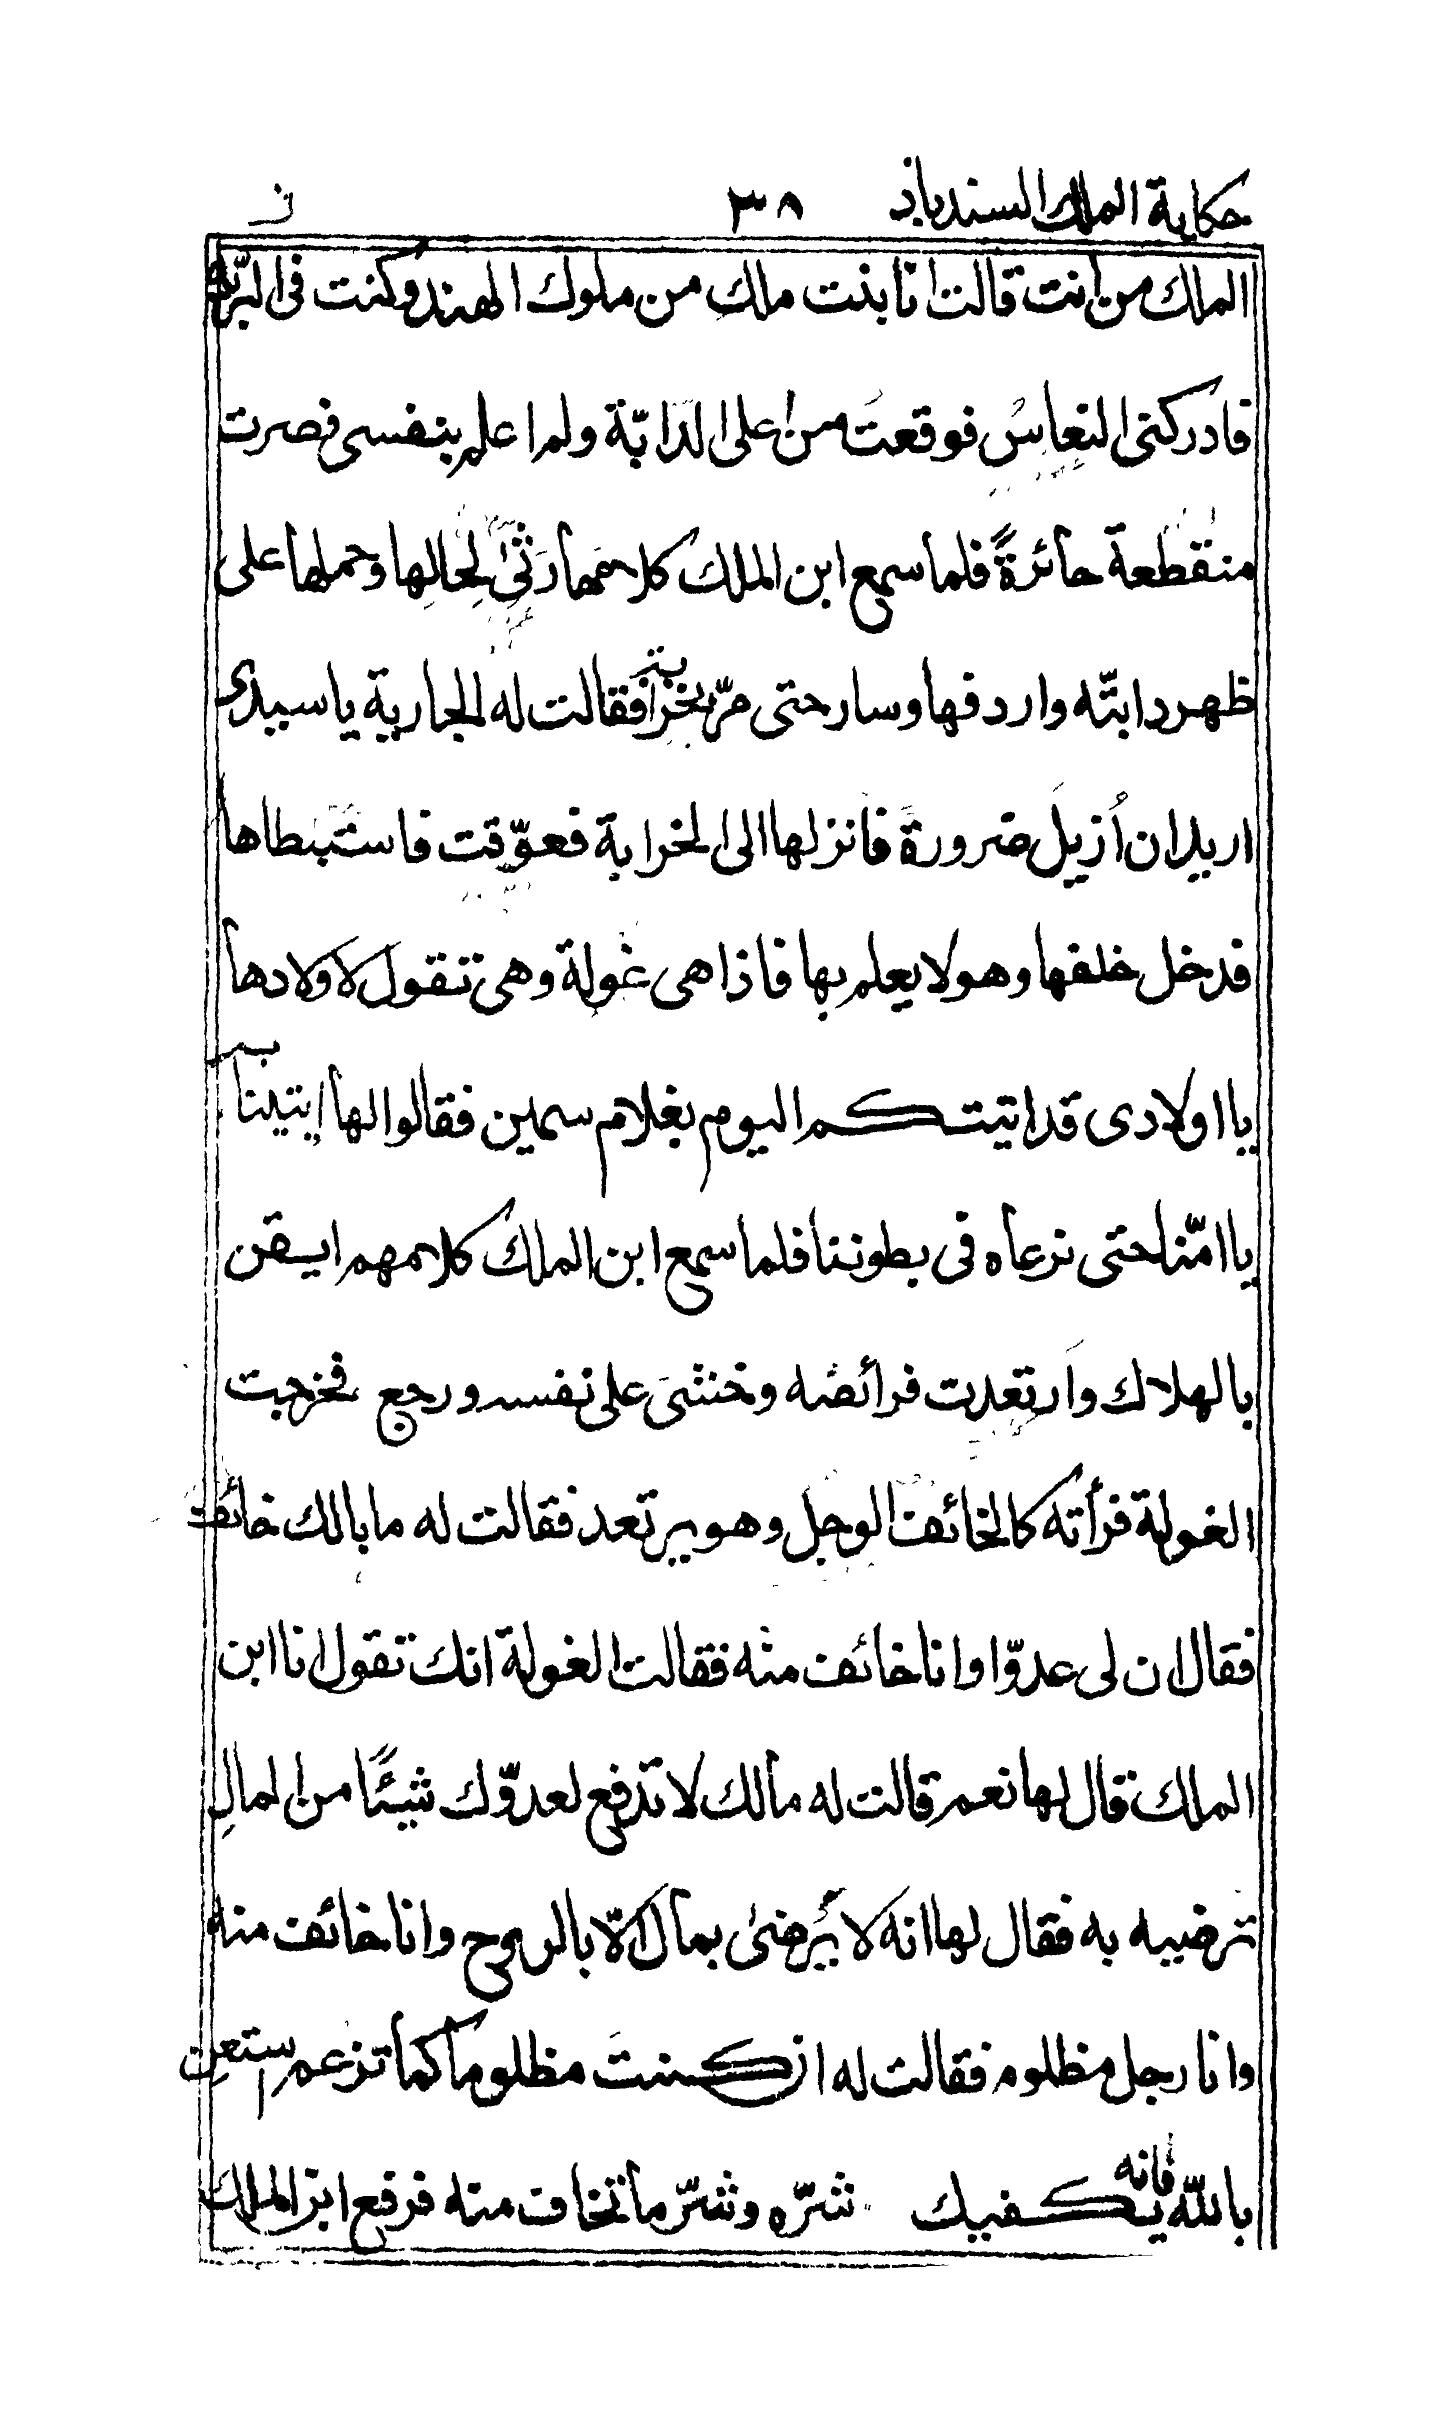 حكاية الملك السندباد ٣٨
الملك من انت قالت انا بنت ملك من ملوك الهند وكنت فى البرّية
فادركنى النعاس فوقعت من اعلى الدابّة ولم اعلم بنفسى فصرت
منقطعة حائرةً فلما سمع ابن الملك كلامها رَثَىٰ لِحالِها وحملها على
ظهر دابتّه واردفها وسار حتى مرّ بخرابة فقالت له الجارية يا سيدى
اريد ان اُزيل ضرورة فانزلها الى الخرابة فعوّقت فاستبطاها
فدخل خلفها وهو لا يعلم بها فاذا هى غولة وهى تقول لاولادها
يا اولادى قد اتيتكم اليوم بغلام سمين فقالوا لها ايتينا به
يا امّنا حتى نرعاه فى بطوننا فلما سمع ابن الملك كلامهم ايقن
بالهلاك وارتعدت فرائضه وخشىَ على نفسه ورجع فخرجت
الغولة فرأته كالخائف الوجل وهو يرتعد فقالت له ما بالك خائف
فقال ان لى عدوّا وانا خائف منه فقالت الغولة انك تقول انا ابن
الملك قال لها نعم قالت له مالك لا تدفع لعدوّك شيئًا من المال
ترضيه به فقال لها انه لا يَرضىٰ بمال الّا بالروح وانا خائف منه
وانا رجل مظلوم فقالت له ان كنتَ مظلوما كما تزعم استعن
بالله فانه يكفيك شرّه وشرّ ما تخاف منه فرفع ابن الملك